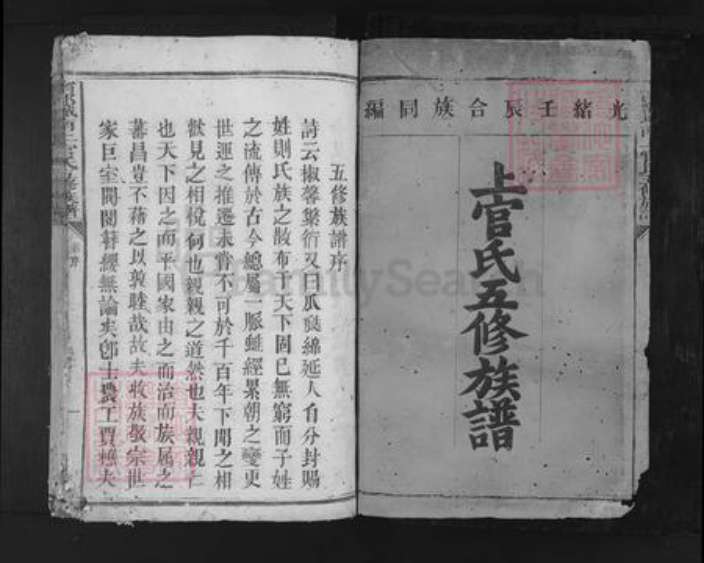 光緒壬辰合族同編
上官氏五修族譜
五修族譜序
詩云椒馨繁衍又曰瓜瓞綿延人自分封賜
姓則氏族之散布于天下固已無窮而子姓
之流傳於古今總屬一脈雖經累朝之變更
世運之推遷未嘗不可於千百年下聞之相
歡見之相悅何也親親之道然也夫親親仁
也天下因之而平國家由之而治而族屬之
蕃昌豈不藉之以敦睦哉故夫收族敬宗世
家巨室閥閱簪纓無論矣卽士農工賈
FamilySearch